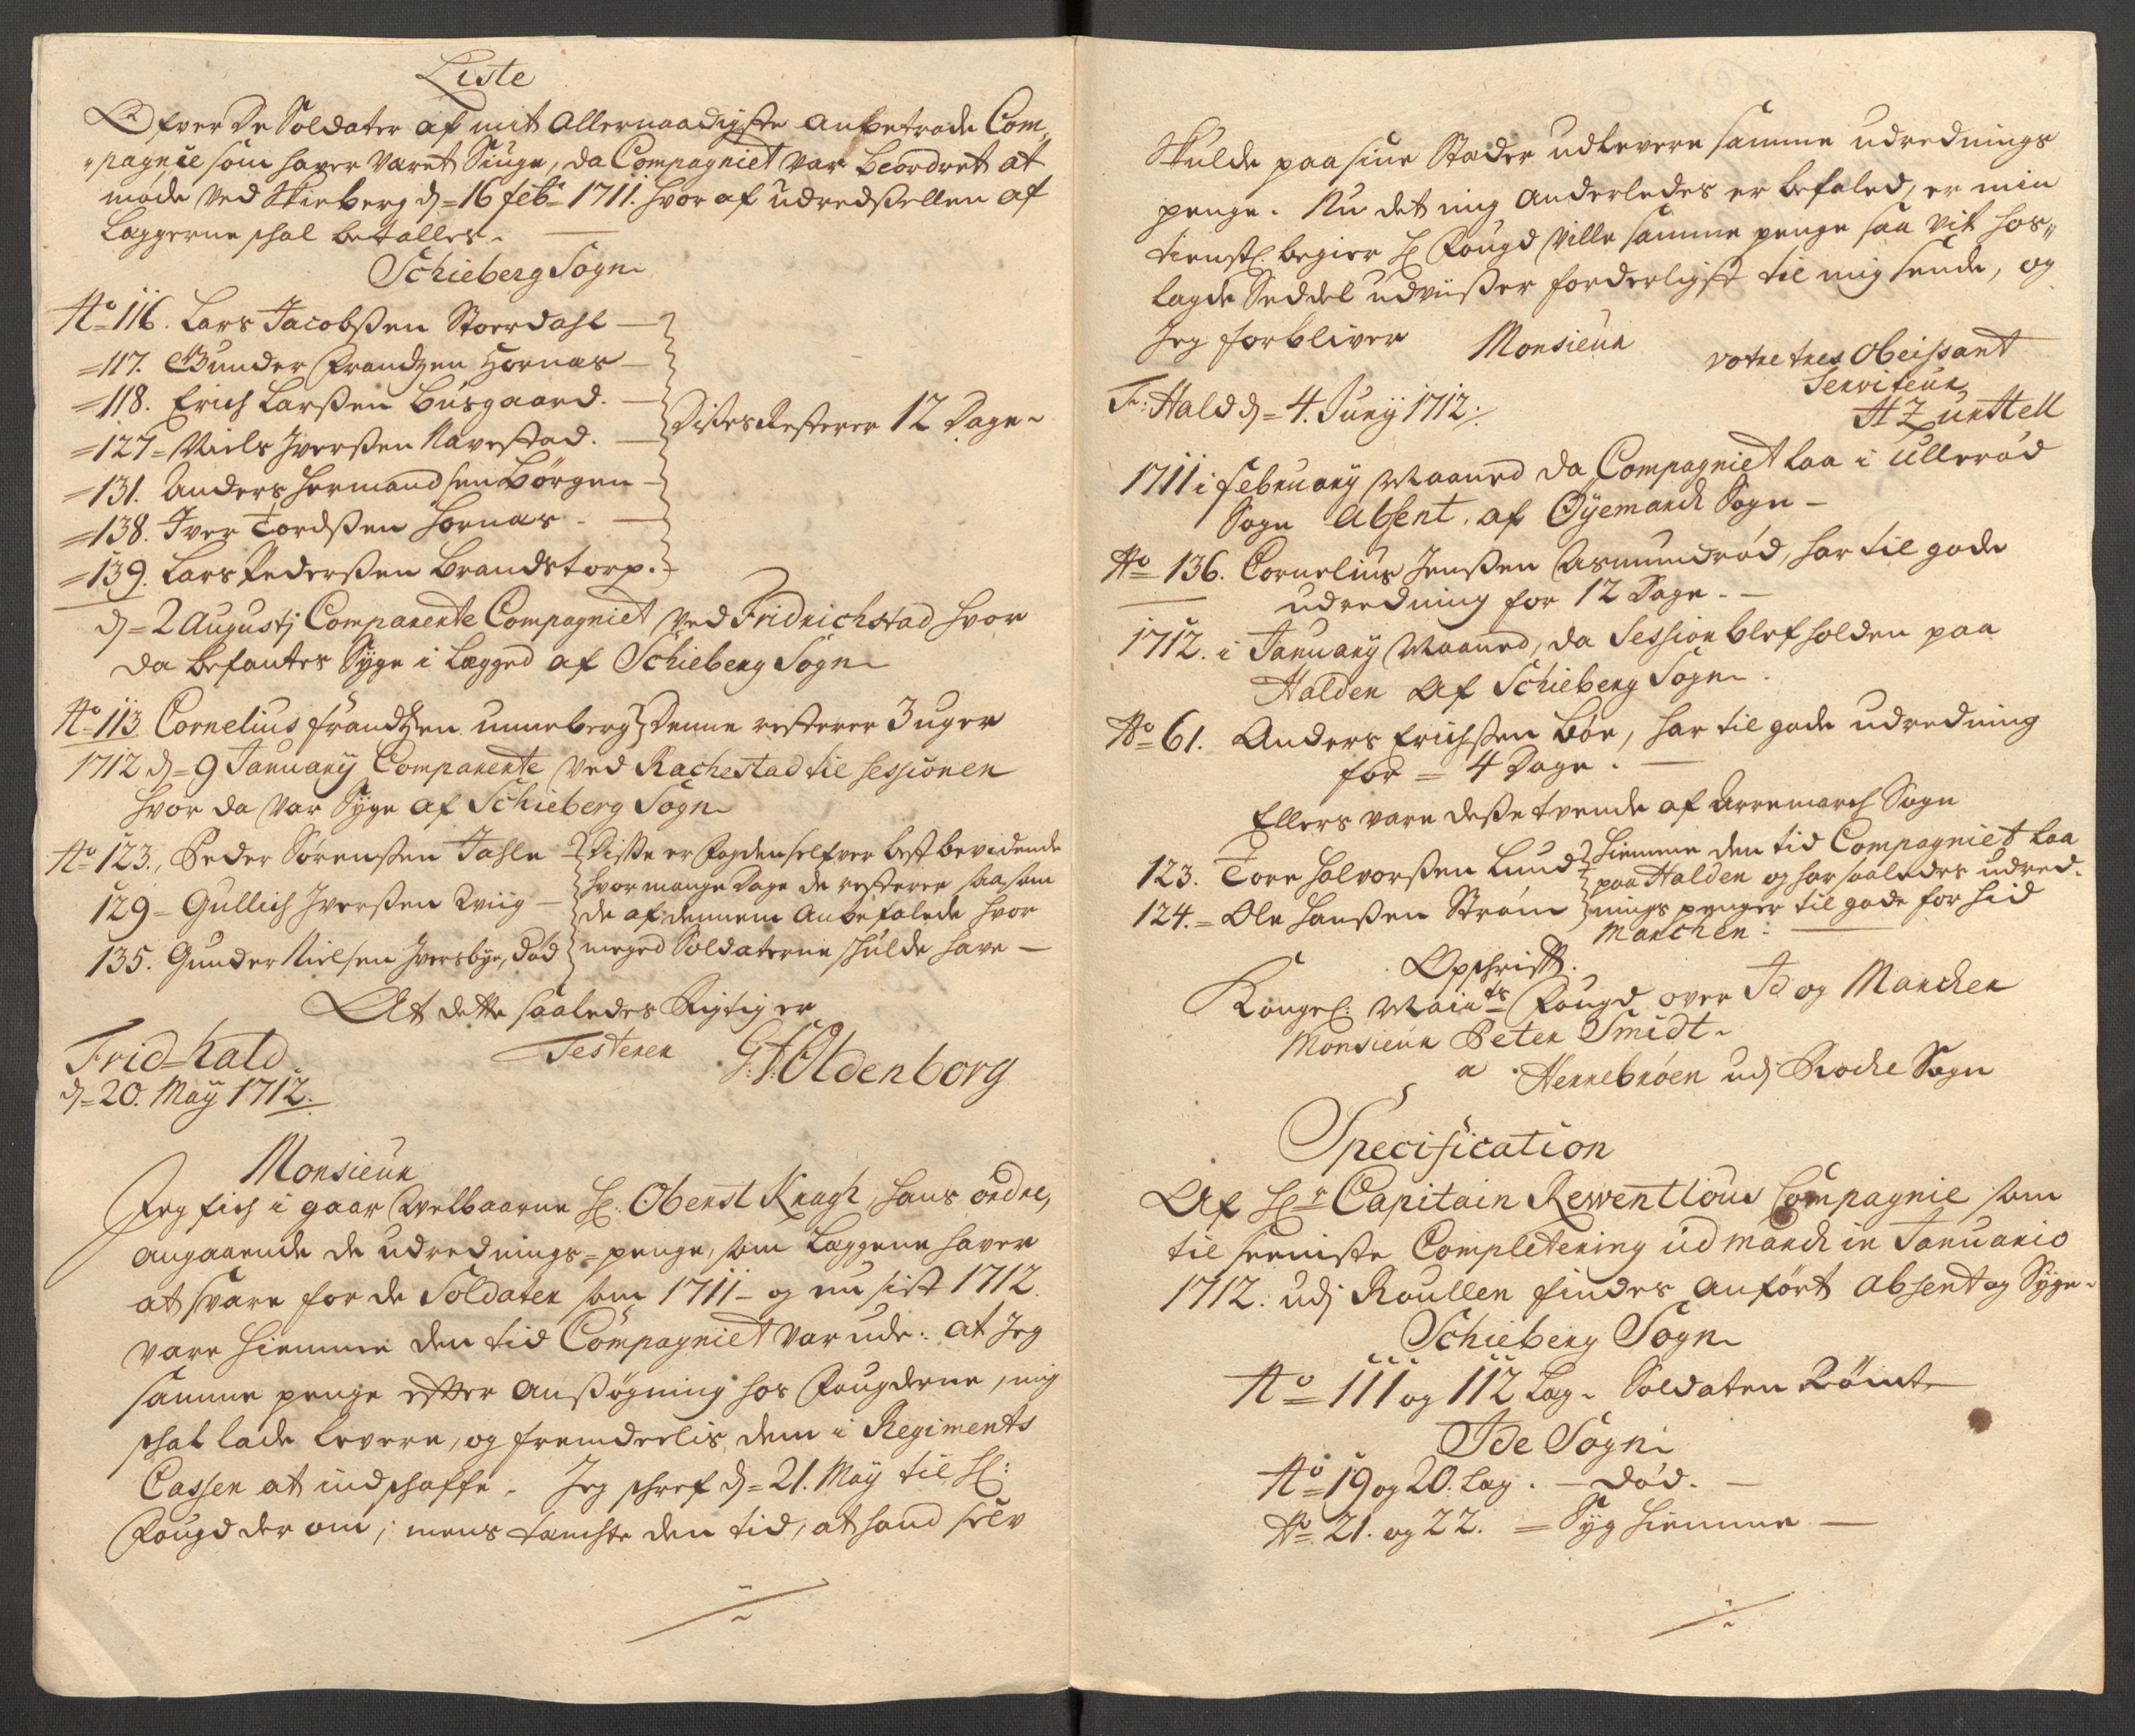 Liste
Ofver De Soldater af mit Allernaadigste anbetrode Com„
„pagnie som hafver Varet Siuge, da Compagniet var beordret at
møde Ved Skieberg d= 16 febr: 1711. hvor af udredsellen af
Læggerne schal betalles.
Schieberg Sogn
No= 116. Lars Jacobsen Stoerdahl —
=117. Gunder Frandzen Hornæs —
=118. Erich Larsen Busgaard. —
=127= Niels Iversen Navestad. — Disses Resterer 12 Dage
=131. Anders Hermandsen Børgen —
=138. Iver Tordsen Hornæs —
=139. Lars Pedersen Brandstorp.
d= 2 Augustj Comparerte Compagniet Ved Fridrichstad hvor
da befantes Syge i Legged af Schieberg Sogn
No= 113 Cornelius Frandtzen Unneberg Denne resterer 3 uger
1712 d= 9 January Comparerte Ved Rachestad til sessionen
hvor da Var Syge af Schieberg Sogn
No= 123., Peder Sørensen Jahle Disse er Fogden selfver best bevidende
129= Gullich Iversen Qviig — hvor mange Dage de resterer saasom
135. Gunder Nielsen Iversbye, død de af dennem Anbefalede hvor
meged Soldaterne skulde have —
At dette saaledes Rigtig er
Testerer
Frid=hald
d= 20. May 1712.
G: F: Oldenborg
Monsieur
Jeg fich i gaar Welbaarne H: Oberst Kragh, hans ordre,
angaaende de udrednings=penge, som Læggene hafver
at svare for de Soldater som 1711 – og nu sist 1712.
vare hiemme den tid Compagniet var ude. at Jeg
samme penge efter ansøgning hos Fougderne, mig
schal lade levere, og fremdeelis dem i Regiments
Cassen at indschaffe. Jeg schref d= 21. May til H:
Fougd der om; mens tænchte den tid, at hand selv
Skulde paa sine Stæder udlevere samme udrednings
penge. Nu det mig Anderledes er befaled, er min
tienstl. begier H: Fougd Ville samme penge saa vit hos„
lagde Seddel udviiser forderligst til mig sende, og
Jeg forbliver Monsieur
votre tres Obeissant
Serviteur
Fr: Hald d= 4. Junij 1712.
1711 i february Maaned da Compagniet laa i Ullerød
Sogn Absent. af Øyemarck Sogn —
No= 136. Cornelius Jensen Asmundrød, har til gode
udredning for 12 Dage. —
1712. i January Maaned, da Session blef holden paa
Halden Af Schieberg Sogn.
No= 61. Anders Erichsen Bøe, har til gode udredning
for = 4 Dage. —
Ellers vare desse tvende af Arremarch Sogn
123. Tore Halvorsen Lund hiemme den tid Compagniet laa
124.= Ole Hansen Strøm paa Halden og har saaledes udred-
nings penger til gode for hid
Marchen: —
Opschrifft.
Kongel: Mayts Fougd over Id og Marcker
Monsieur Peter Smidt
a Herrebrøen udj Rocke Sogn
Specification
Af Hr Capitain Rewentlous Compagnie som
til seeniste Completering udmarch in Januario
1712. udj Roullen findes anført absent og Syge.
Schieberg Sogn
No= 111 og 112 Læg. Soldaten Rømt
Ide Sogn
No= 19 og 20. Læg. — død. —
No= 21. og 22. = Syg hiemme —